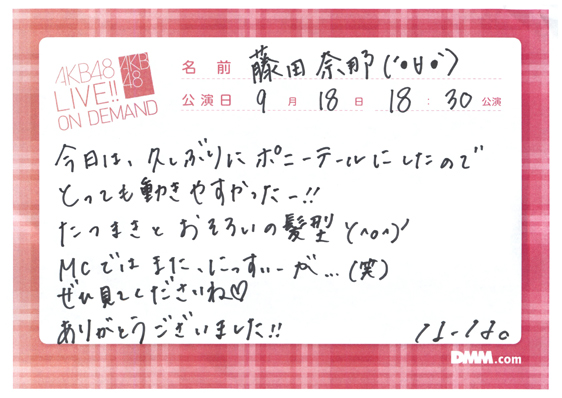 AKB48
LIVE!!
ON DEMAND
AKB
48
名前 藤田奈那(´•ㅂ•`)
公演日 9月18日 18:30公演
今日は、久しぶりにポニーテールにしたので
とっても動きやすかったー!!
たつまきとおそろいの髪型\(^o^)/
MCではまた、にっすぃーが…(笑)
ぜひ見てくださいね♡
ありがとうございました!!
DMM.com